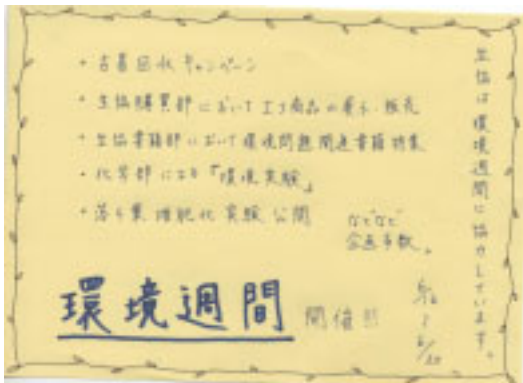 ・古着回収キャンペーン
・生協購買部においてエコ商品の展示・販売
・生協書籍部において環境問題関連書籍特集
・化学部による「環境実験」
・落ち葉堆肥化実験公開
などなど
企画多数。
環境週間 開催!!
生協は環境週間に協力しています。